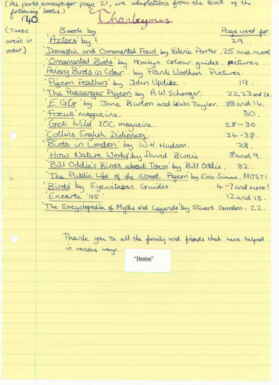 (All parts except for page 21, are adaptations from the book of the
following books)
Books by
Pages used for
(These
were in
order)
'Aztecs' by
29
'Domestic and Ornamental Fowl' by Valerie Porter. 25 and more
'Ornamental Birds' by Hamlyn colour guides. Pictures
'Aviary Birds in Colour' by Frank Woolham Pictures.
'Pigeon Feathers' by John Updike 19.
'The Passenger Pigeon' by A.W. Schorger. 22, 23 and
'EGG' by Jane Burton and Kevin Taylor. 8 and 14.
Focus magazine. 30.
Great Wild magazine 28-30
Collins English Dictionary. 36-38.
'Birds in London' by W.H. Hudson. 28.
'How Nature Works' by David Burnie 8 and 9.
'Bill Oddie's Birds about Town' by Bill Oddie. 32.
'The Public Life of the Street Pigeon' by Eric Simms.
'Birds' by Eyewitness Guides 4-7 and more!
'Encarta '95' 12 and 13.
'The Encyclopedia of Myths and Legends' by Stuart Gordon. 22.
Thank you to all the family and friends that have helped
in various ways.